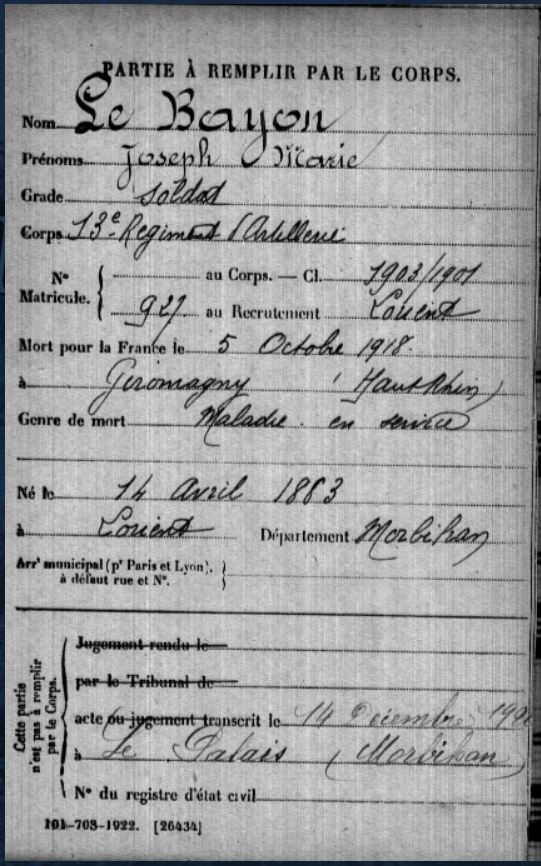 PARTIE À REMPLIR PAR LE CORPS.
Nom Le Bayon
Prénoms Joseph Marie
Grade soldat
Corps 13e Régiment d'Artillerie
N° Matricule. { au Corps. — Cl. 1903/1901
927 au Recrutement Lorient
Mort pour la France le 5 Octobre 1918.
à Giromagny (Haut Rhin)
Genre de mort Maladie en service
Né le 14 Avril 1883
à Lorient Département Morbihan
Arrt municipal (pr Paris et Lyon), à défaut rue et N°. }
Cette partie n'est pas à remplir par le Corps.
Jugement rendu le
par le Tribunal de
acte ou jugement transcrit le 14 Décembre
à Le Palais (Morbihan)
N° du registre d'état civil
101-708-1922. [26434]